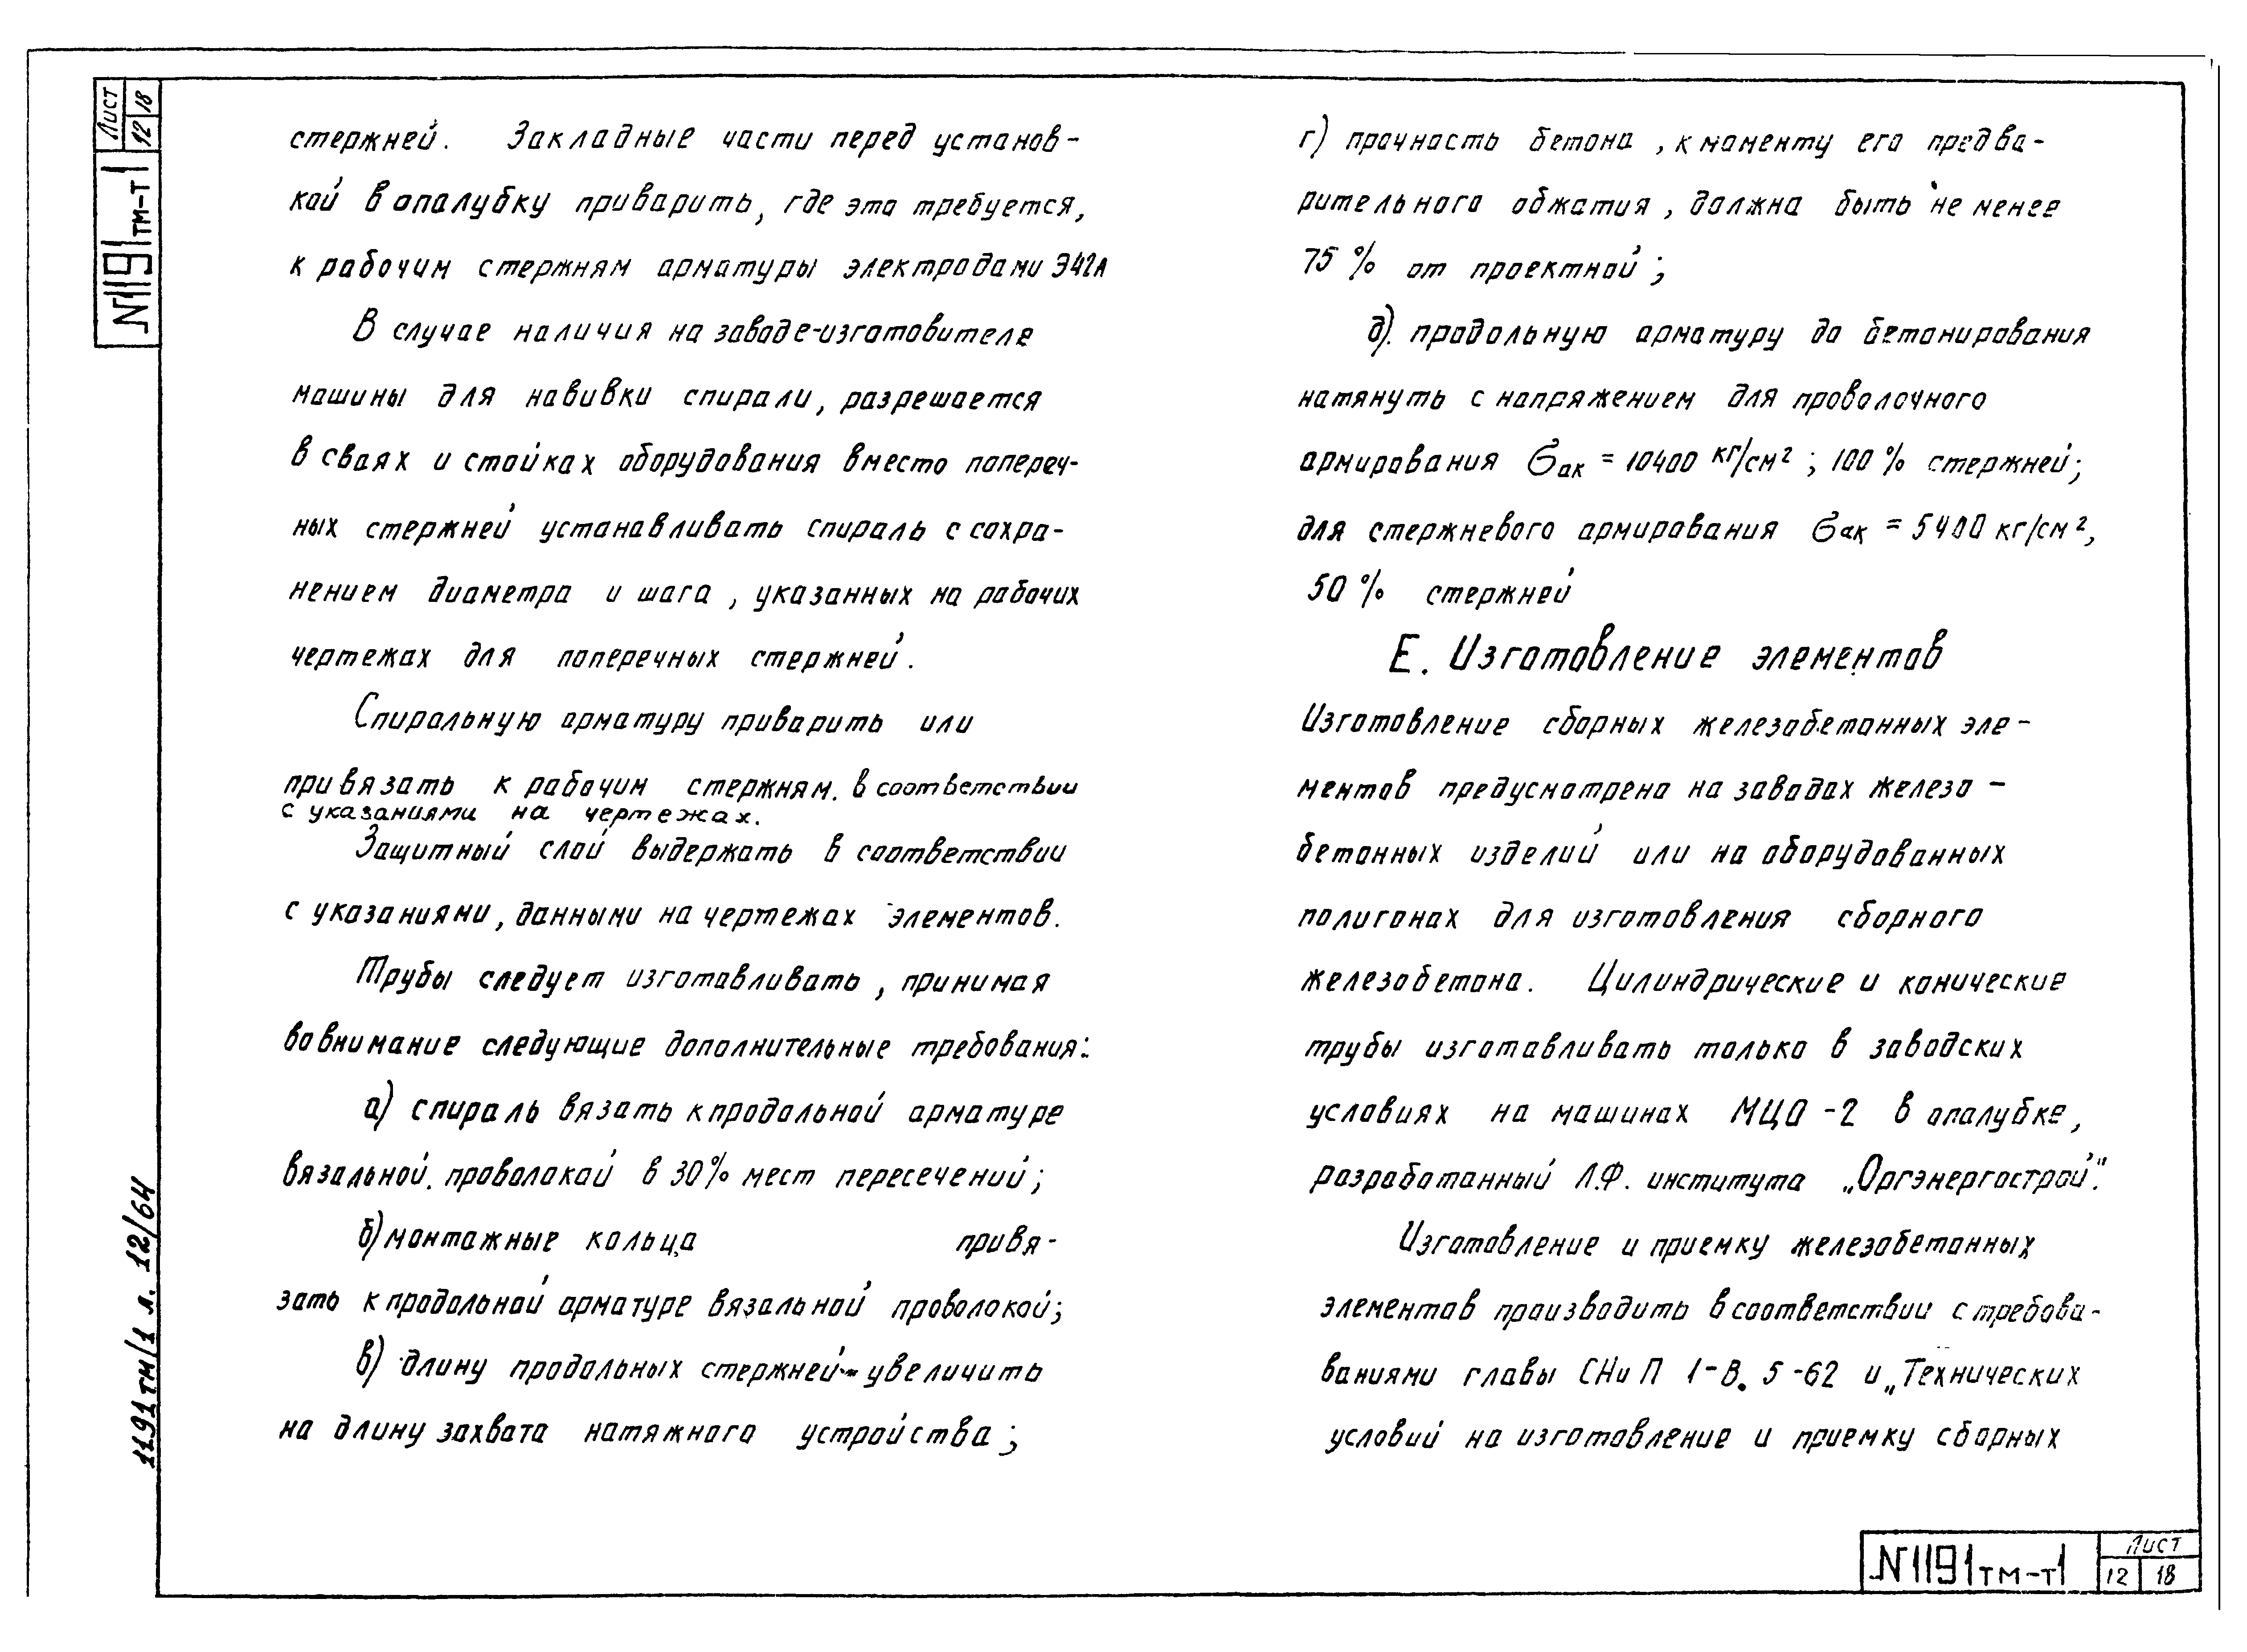 Лист
12 18
№1191тм-т1
стержней. Закладные части перед установ-
кой в опалубку приварить, где это требуется,
к рабочим стержням арматуры электродами Э42А
В случае наличия на заводе-изготовителе
машины для навивки спирали, разрешается
в сваях и стойках оборудования вместо попереч-
ных стержней устанавливать спираль с сохра-
нением диаметра и шага, указанных на рабочих
чертежах для поперечных стержней.
Спиральную арматуру приварить или
привязать к рабочим стержням. в соответствии
с указаниями на чертежах.
Защитный слой выдержать в соответствии
с указаниями, данными на чертежах элементов.
Трубы следует изготавливать, принимая
во внимание следующие дополнительные требования:
а) спираль вязать к продольной арматуре
вязальной проволокой в 30% мест пересечений;
б) монтажные кольца привя-
зать к продольной арматуре вязальной проволокой;
в) длину продольных стержней увеличить
на длину захвата натяжного устройства;
г) прочность бетона, к моменту его предва-
рительного обжатия, должна быть не менее
75% от проектной;
д). продольную арматуру до бетонирования
натянуть с напряжением для проволочного
армирования σак = 10400 кг/см²; 100% стержней;
для стержневого армирования σак = 5400 кг/см²,
50% стержней
Е. Изготовление элементов
Изготовление сборных железобетонных эле-
ментов предусмотрено на заводах железо-
бетонных изделий или на оборудованных
полигонах для изготовления сборного
железобетона. Цилиндрические и конические
трубы изготавливать только в заводских
условиях на машинах МЦО-2 в опалубке,
разработанный Л.Ф. института „Оргэнергострой".
Изготовление и приемку железобетонных
элементов производить в соответствии с требова-
ваниями главы СНиП I-В. 5-62 и „Технических
условий на изготовление и приемку сборных
1191тм/1 л. 12/64
№1191тм-т1
Лист
12 18